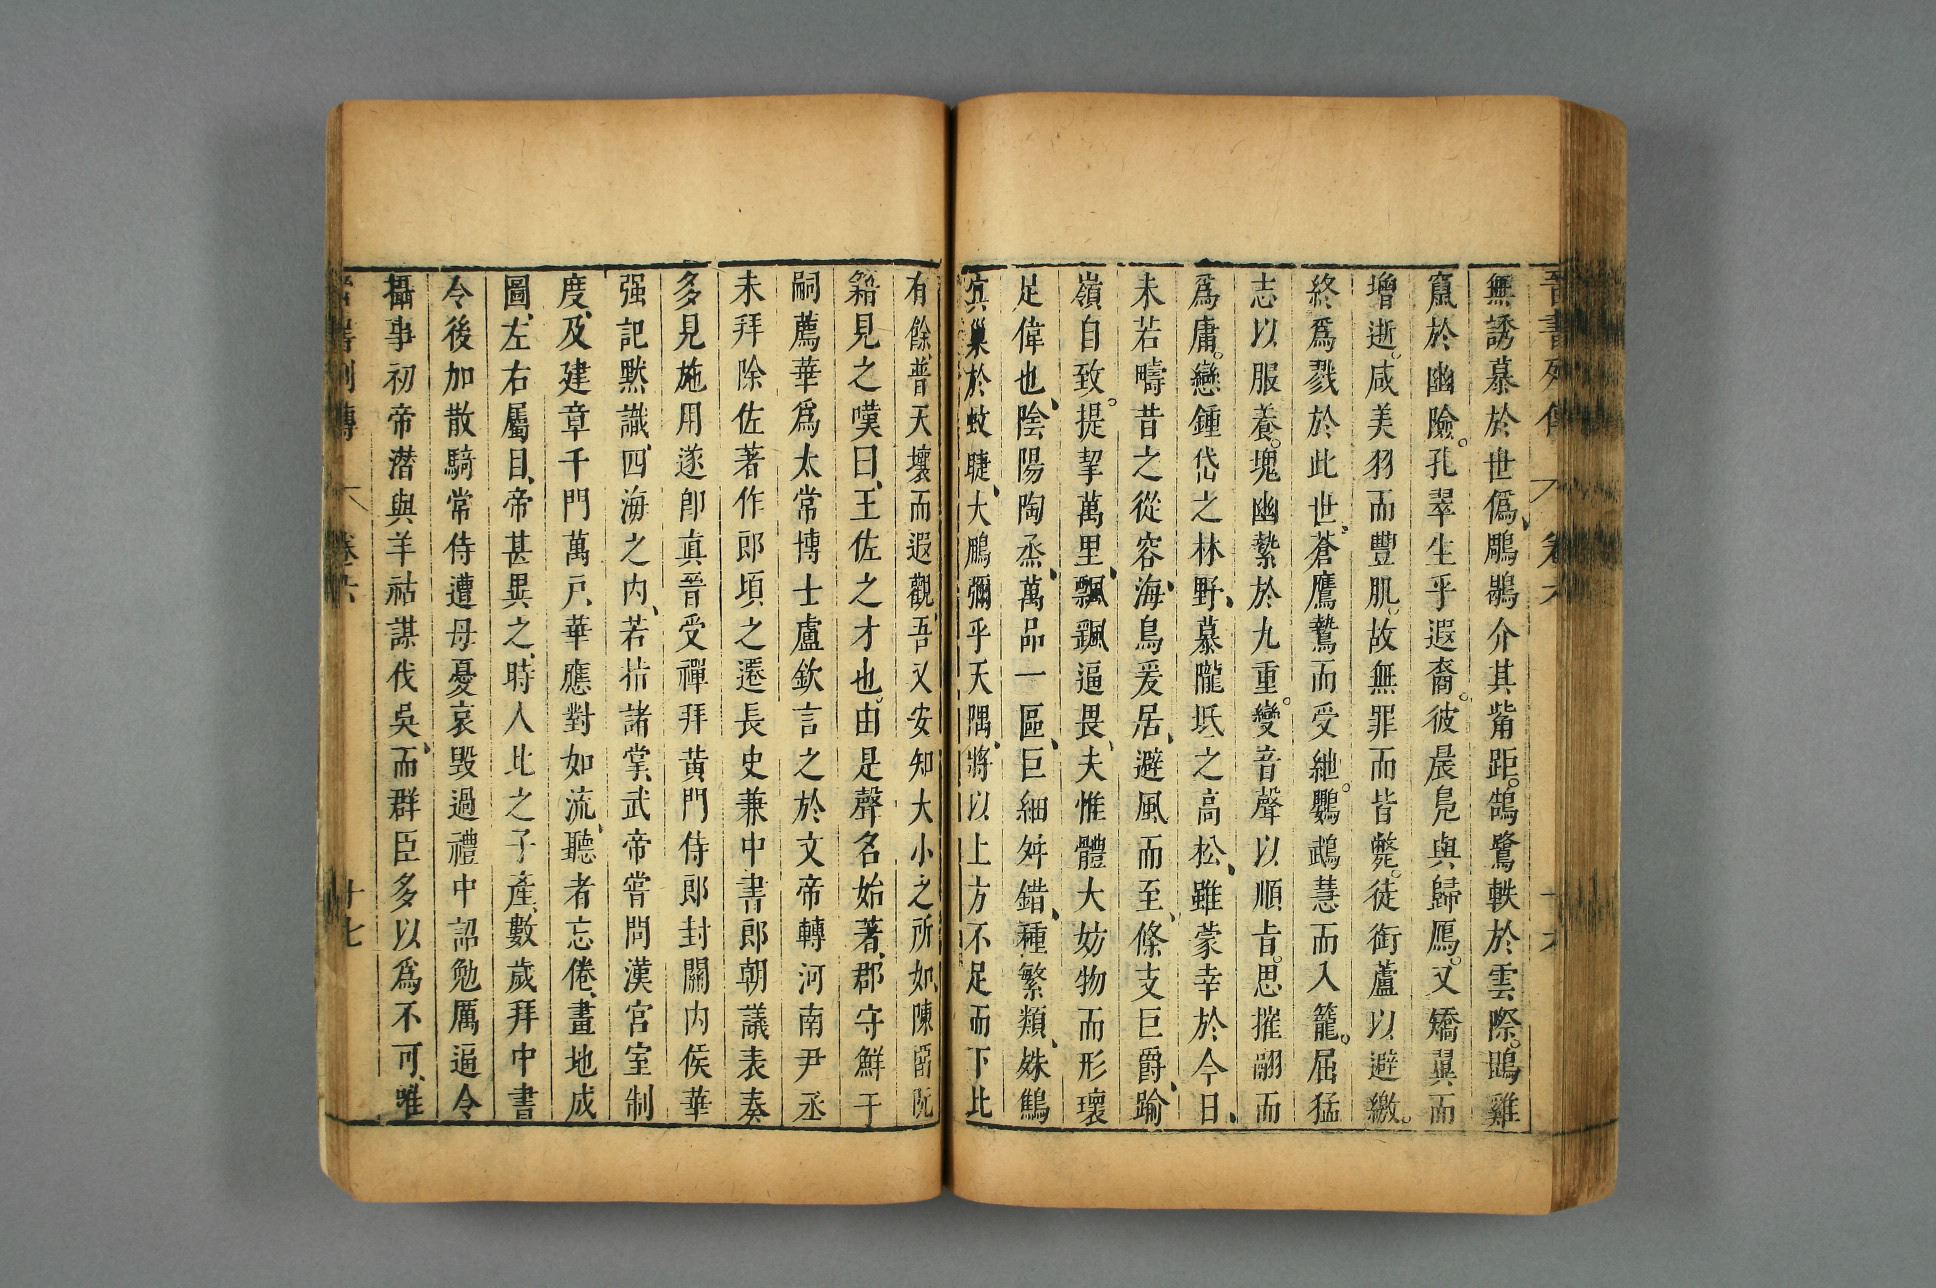 晉書列傳 卷六 十六
無誘慕於世僞、鵰鶡介其觜距。鵠鷺軼於雲際。鵾雞
竄於幽險。孔翠生乎遐裔。彼晨鳧與歸鴈。又矯翼而
增逝。咸美羽而豐肌。故無罪而皆斃。徒銜蘆以避繳。
終爲戮於此世、蒼鷹鷙而受紲。鸚鵡慧而入籠。屈猛
志以服養。塊幽縶於九重。變音聲以順旨。思摧翮而
爲庸。戀鍾岱之林野、慕隴坻之高松、雖蒙幸於今日、
未若疇昔之從容、海鳥爰居、避風而至、條支巨爵、踰
嶺自致。提挈萬里、飄颻逼畏、夫惟體大妨物而形瓌
足偉也、陰陽陶烝、萬品一區、巨細舛錯、種繁類、殊鷦
寘巢於蚊睫、大鵬彌乎天隅、將以上方不足而下比
有餘、普天壤而遐觀、吾又安知大小之所如、陳留阮
籍見之嘆曰、王佐之才也。由是聲名始著、郡守鮮于
嗣薦華爲太常博士盧欽言之於文帝轉河南尹丞
未拜除佐著作郎頃之遷長史兼中書郎朝議表奏
多見施用遂卽眞晉受禪拜黃門侍郎封關內侯華
强記默識、四海之內、若指諸掌、武帝嘗問漢宮室制
度、及建章千門萬戶、華應對如流、聽者忘倦、畫地成
圖、左右屬目、帝甚異之、時人比之子產、數歲拜中書
令後加散騎常侍遭母憂哀毀過禮中詔勉厲逼令
攝事初帝潛與羊祜謀伐吳、而群臣多以爲不可、唯
晉書列傳 卷六 十七